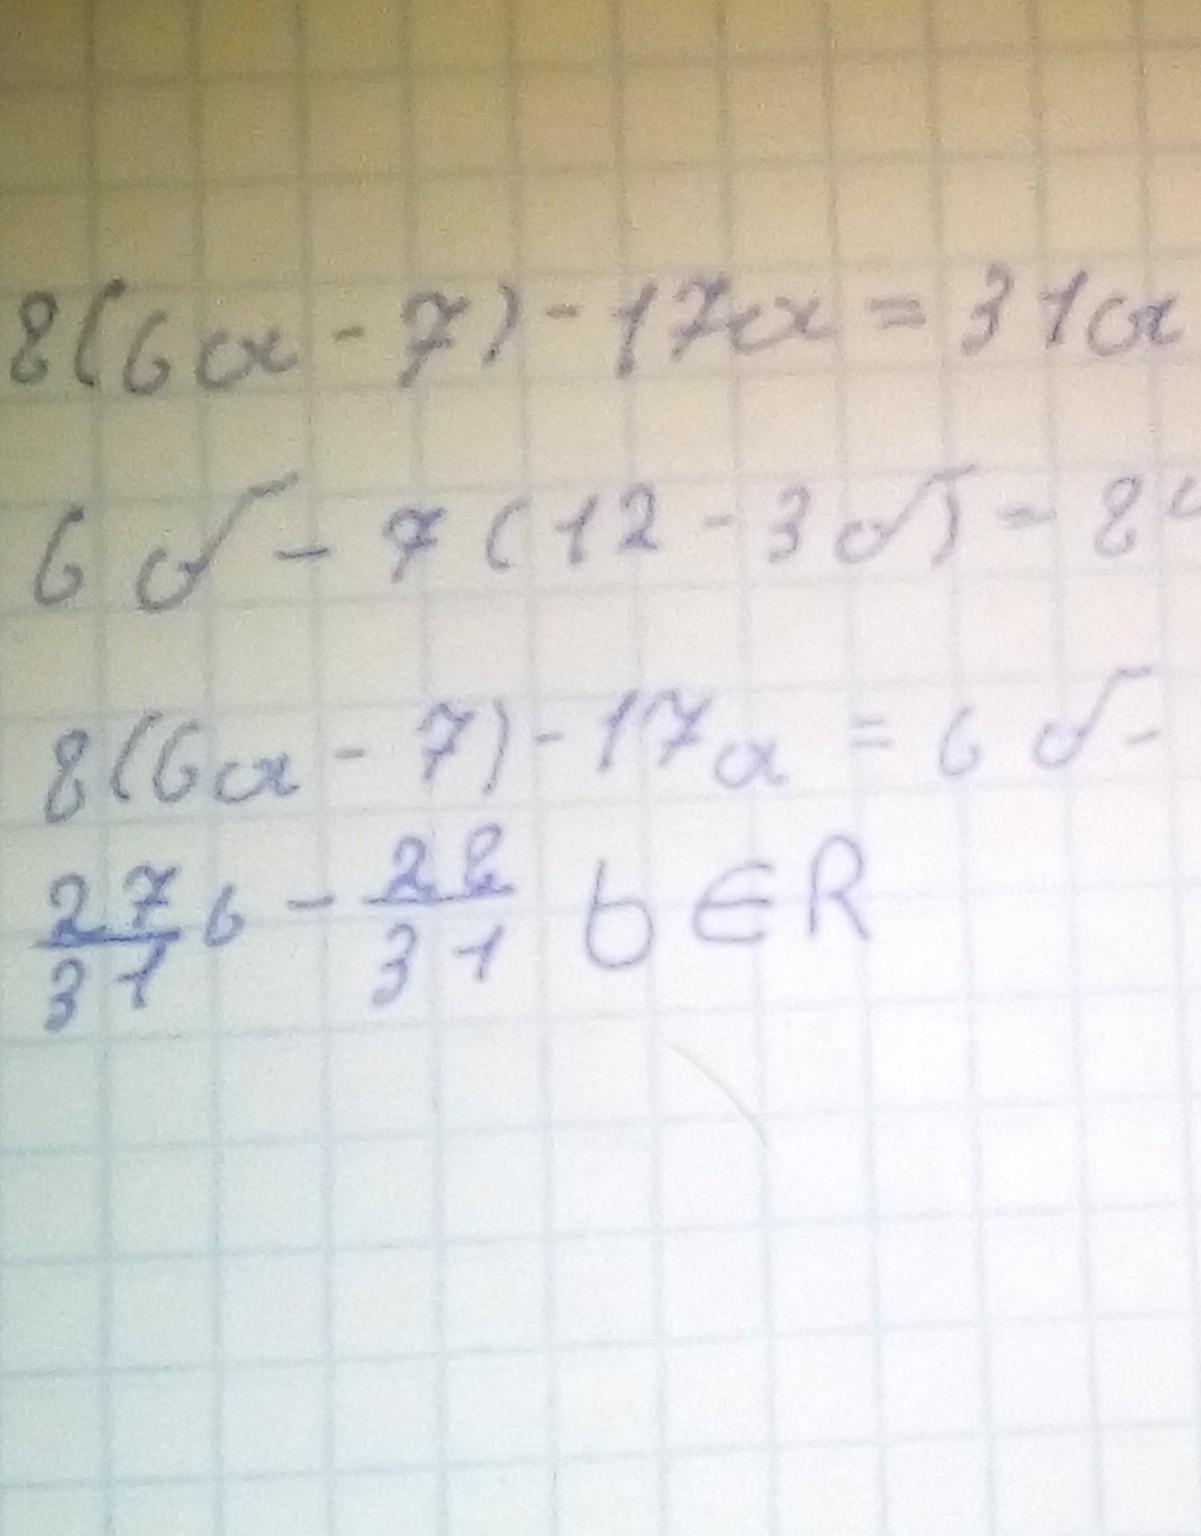 8(6a - 7) - 17a = 31a
6б - 7(12 - 3б) = 8
8(6a - 7) - 17a = 6б -
27/31 б - 28/31 б ∈ R